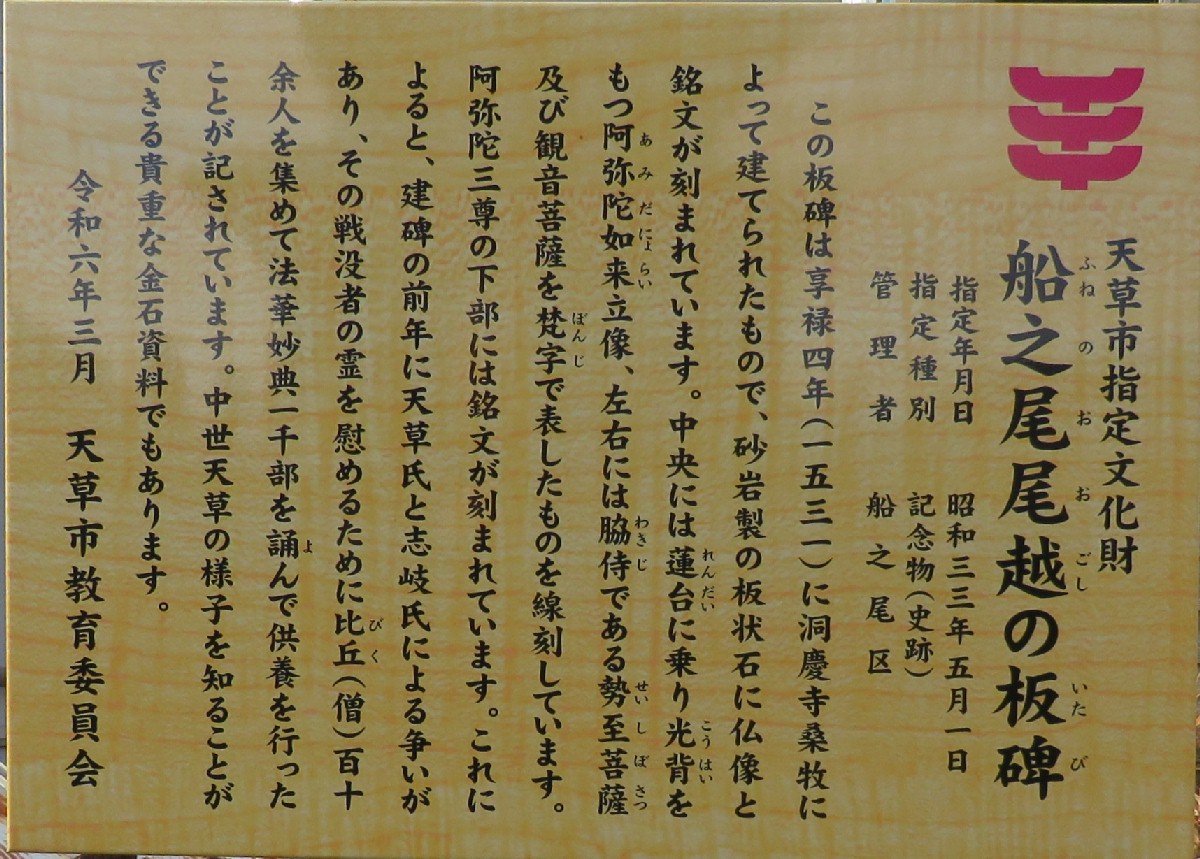 天草市指定文化財
船之尾尾越の板碑
ふねのおおごしいたび
指定年月日 昭和三三年五月一日
指定種別 記念物(史跡)
管理者 船之尾区
この板碑は享禄四年(一五三一)に洞慶寺桑牧に
よって建てられたもので、砂岩製の板状石に仏像と
銘文が刻まれています。中央には蓮台に乗り光背を
れんだい こうはい
もつ阿弥陀如来立像、左右には脇侍である勢至菩薩
あみだにょらい わきじ せいしぼさつ
及び観音菩薩を梵字で表したものを線刻しています。
ぼんじ
阿弥陀三尊の下部には銘文が刻まれています。これに
よると、建碑の前年に天草氏と志岐氏による争いが
あり、その戦没者の霊を慰めるために比丘(僧)百十
びく
余人を集めて法華妙典一千部を誦んで供養を行った
よ
ことが記されています。中世天草の様子を知ることが
できる貴重な金石資料でもあります。
令和六年三月 天草市教育委員会